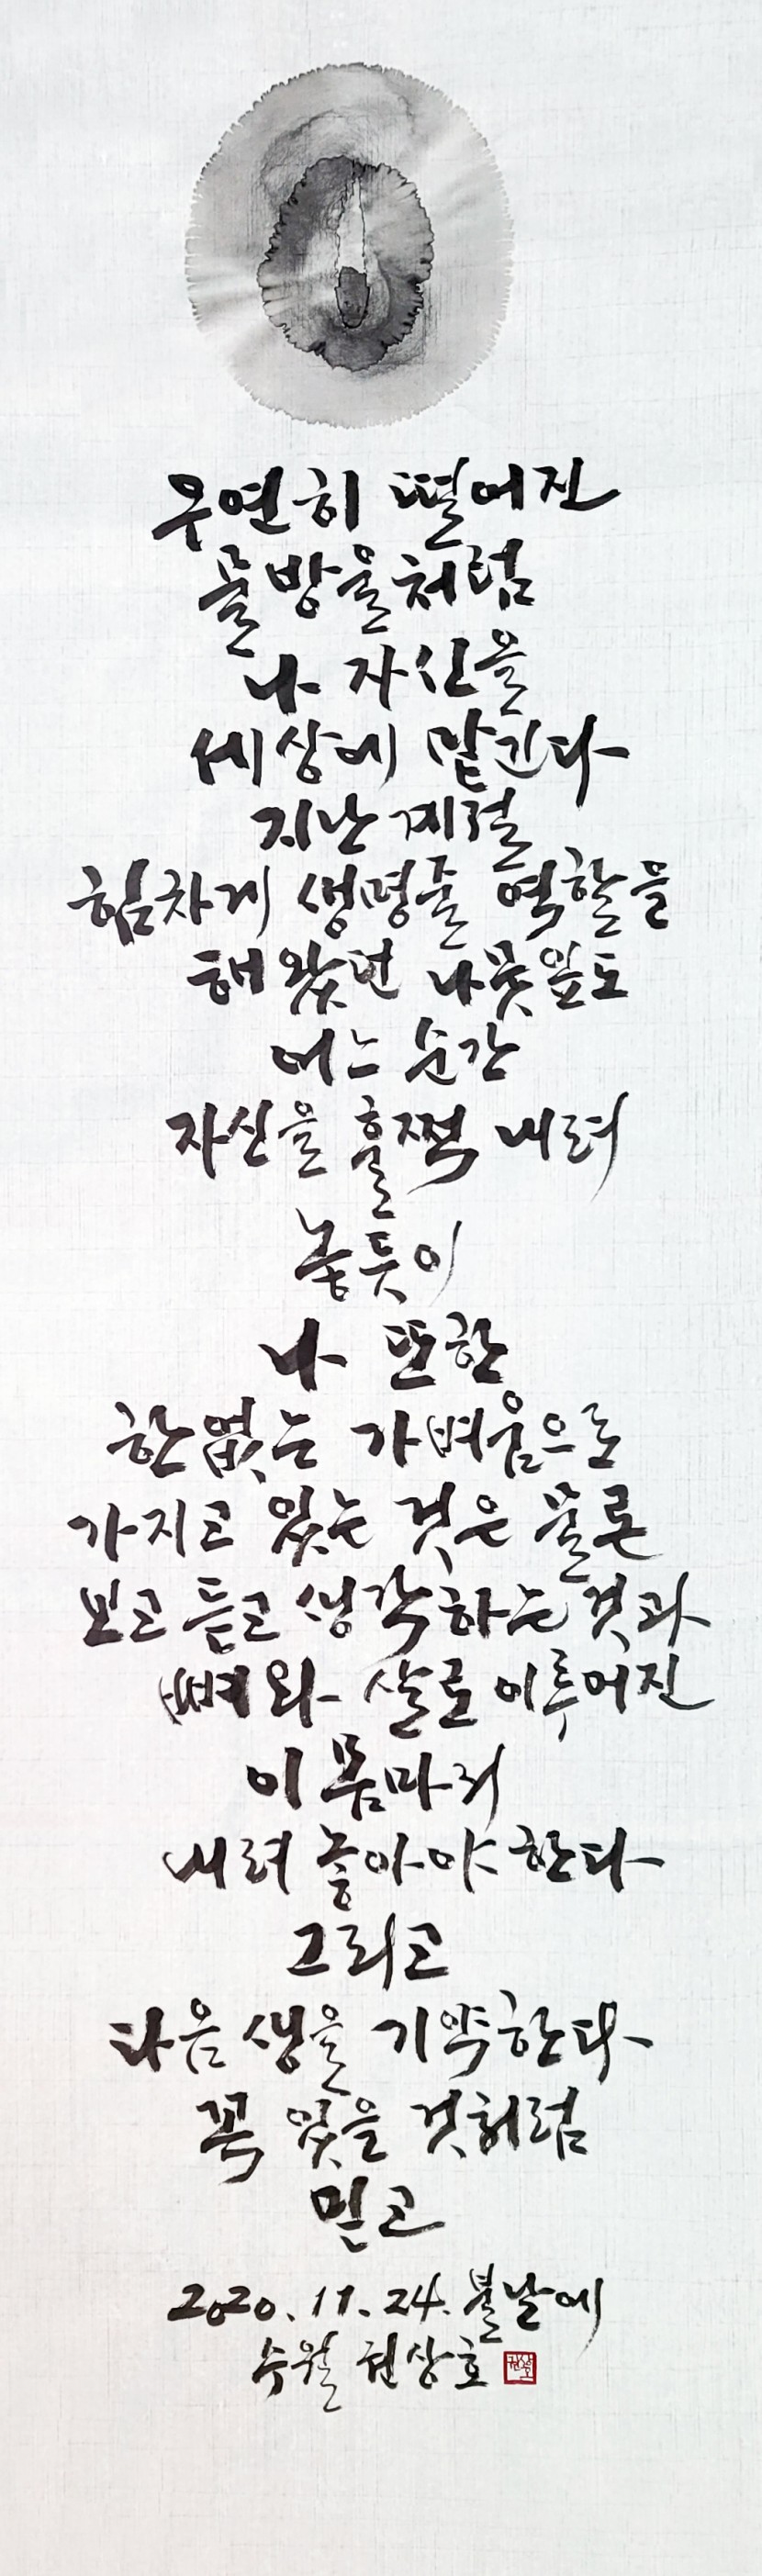 우연히 떨어진
물방울처럼
나 자신을
세상에 맡긴다
지난 계절
힘차게 생명줄 역할을
해 왔던 나뭇잎도
어느 순간
자신을 훌쩍 내려
놓듯이
나 또한
한없는 가벼움으로
가지고 있는 것은 물론
보고 듣고 생각하는 것과
뼈와 살로 이루어진
이 몸마저
내려 놓아야 한다
그리고
다음 생을 기약한다
꼭 있을 것처럼
믿고
2020. 11. 24. 불날에
수월 권상호